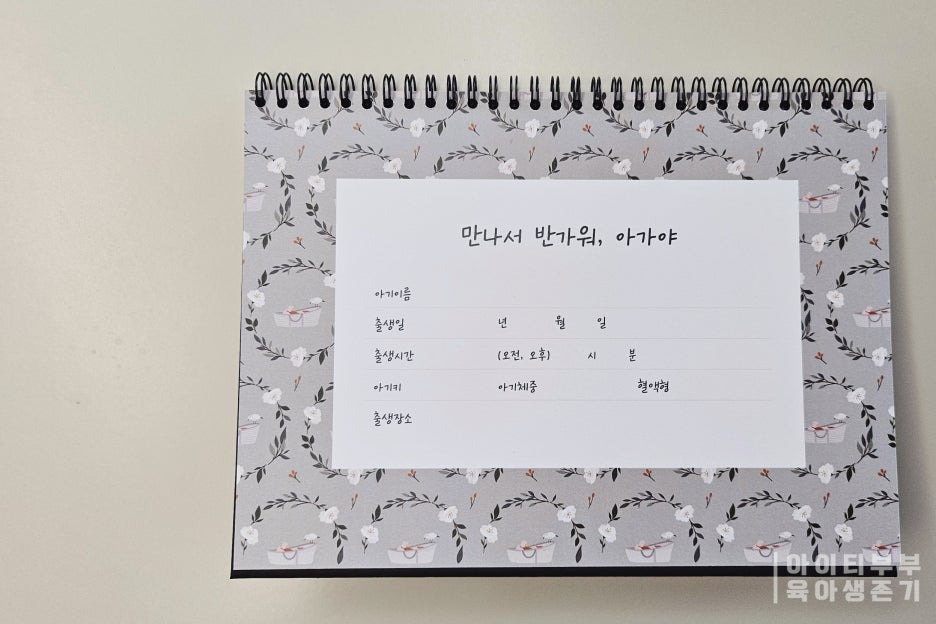 만나서 반가워, 아가야
아기이름
출생일 년 월 일
출생시간 (오전, 오후) 시 분
아기키 아기체중 혈액형
출생장소
아이티부부
육아생존기